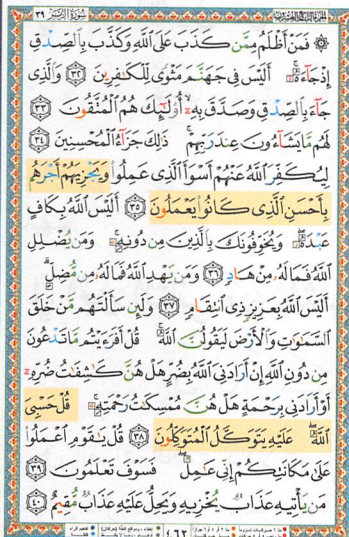 سورة الزمر ٣٩
۞ فَمَنْ أَظْلَمُ مِمَّن كَذَبَ عَلَى ٱللَّهِ وَكَذَّبَ بِٱلصِّدْقِ
إِذْ جَآءَهُۥٓ ۚ أَلَيْسَ فِى جَهَنَّمَ مَثْوًى لِّلْكَٰفِرِينَ ٣٢ وَٱلَّذِى
جَآءَ بِٱلصِّدْقِ وَصَدَّقَ بِهِۦٓ ۙ أُو۟لَٰٓئِكَ هُمُ ٱلْمُتَّقُونَ ٣٣
لَهُم مَّا يَشَآءُونَ عِندَ رَبِّهِمْ ۚ ذَٰلِكَ جَزَآءُ ٱلْمُحْسِنِينَ ٣٤
لِيُكَفِّرَ ٱللَّهُ عَنْهُمْ أَسْوَأَ ٱلَّذِى عَمِلُوا۟ وَيَجْزِيَهُمْ أَجْرَهُم
بِأَحْسَنِ ٱلَّذِى كَانُوا۟ يَعْمَلُونَ ٣٥ أَلَيْسَ ٱللَّهُ بِكَافٍ
عَبْدَهُۥ ۖ وَيُخَوِّفُونَكَ بِٱلَّذِينَ مِن دُونِهِۦ ۚ وَمَن يُضْلِلِ
ٱللَّهُ فَمَا لَهُۥ مِنْ هَادٍ ٣٦ وَمَن يَهْدِ ٱللَّهُ فَمَا لَهُۥ مِن مُّضِلٍّ ۗ
أَلَيْسَ ٱللَّهُ بِعَزِيزٍ ذِى ٱنتِقَامٍ ٣٧ وَلَئِن سَأَلْتَهُم مَّنْ خَلَقَ
ٱلسَّمَٰوَٰتِ وَٱلْأَرْضَ لَيَقُولُنَّ ٱللَّهُ ۚ قُلْ أَفَرَءَيْتُم مَّا تَدْعُونَ
مِن دُونِ ٱللَّهِ إِنْ أَرَادَنِىَ ٱللَّهُ بِضُرٍّ هَلْ هُنَّ كَٰشِفَٰتُ ضُرِّهِۦٓ
أَوْ أَرَادَنِى بِرَحْمَةٍ هَلْ هُنَّ مُمْسِكَٰتُ رَحْمَتِهِۦ ۚ قُلْ حَسْبِىَ
ٱللَّهُ ۖ عَلَيْهِ يَتَوَكَّلُ ٱلْمُتَوَكِّلُونَ ٣٨ قُلْ يَٰقَوْمِ ٱعْمَلُوا۟
عَلَىٰ مَكَانَتِكُمْ إِنِّى عَٰمِلٌ ۖ فَسَوْفَ تَعْلَمُونَ ٣٩
مَن يَأْتِيهِ عَذَابٌ يُخْزِيهِ وَيَحِلُّ عَلَيْهِ عَذَابٌ مُّقِيمٌ ٤٠
٤٦٢